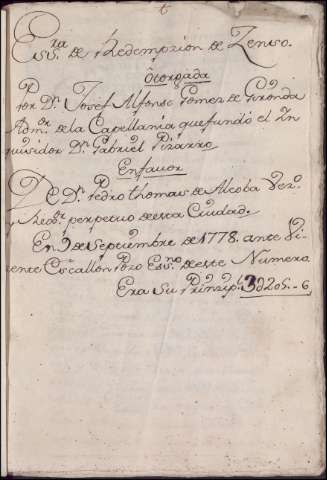 Essra. de Redempzion de Zenso.
Otorgada
Por Dn. Josef Alfonso Gomez de Gironda
Admor. de la Capellania que fundó el In
quisidor Dn. Gabriel Pizarro
En favor
De Dn. Pedro Thomas de Alcoba Vezº.
y Rexor. perpetuo de esta Ciudad.
En 9 de Septiembre de 1778. ante Vi
zente Escallon Pozo Essno. de este Numero
Era su Prinzipl. 3U205.-6